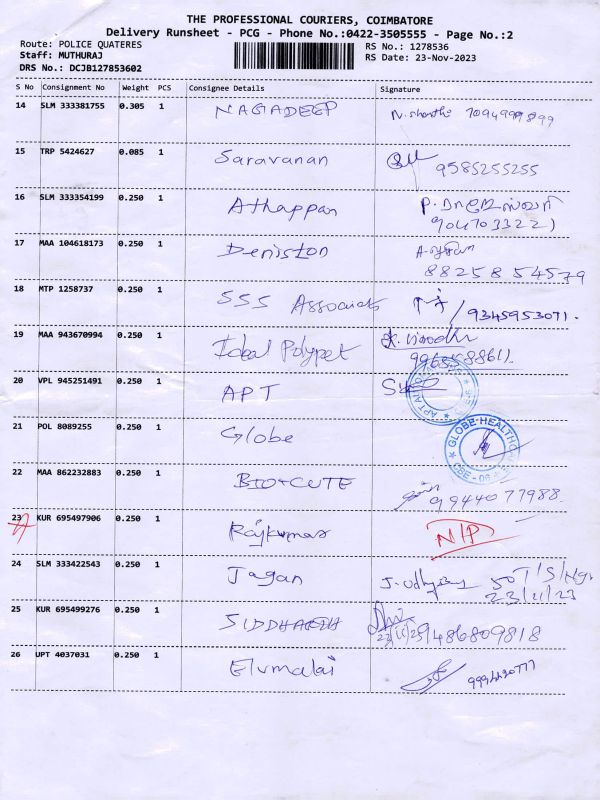 THE PROFESSIONAL COURIERS, COIMBATORE
Delivery Runsheet - PCG - Phone No.:0422-3505555 - Page No.:2
Route: POLICE QUATERES
Staff: MUTHURAJ
DRS No.: DCJB127853602
RS No.: 1278536
RS Date: 23-Nov-2023
S No Consignment No Weight PCS Consignee Details Signature
14 SLM 333381755 0.305 1 NAGADEEP N. Shanthi 7094999899
15 TRP 5424627 0.085 1 Saravanan 9585255255
16 SLM 333354199 0.250 1 Athappan
17 MAA 104618173 0.250 1 Deniston
88258 54579
18 MTP 1258737 0.250 1 SSS Associats / 9345953071.
19 MAA 943670994 0.250 1 Ideal Polypet
20 VPL 945251491 0.250 1 APT
21 POL 8089255 0.250 1 Globe GLOBE HEALTHC
22 MAA 862232883 0.250 1 BIO+CUTE 9944077988.
23 KUR 695497906 0.250 1 Rajkumar N/P
24 SLM 333422543 0.250 1 Jagan
23/11/23
25 KUR 695499276 0.250 1 SIDDHARTH
23/11/23 9486809818
26 UPT 4037031 0.250 1 Elumalai